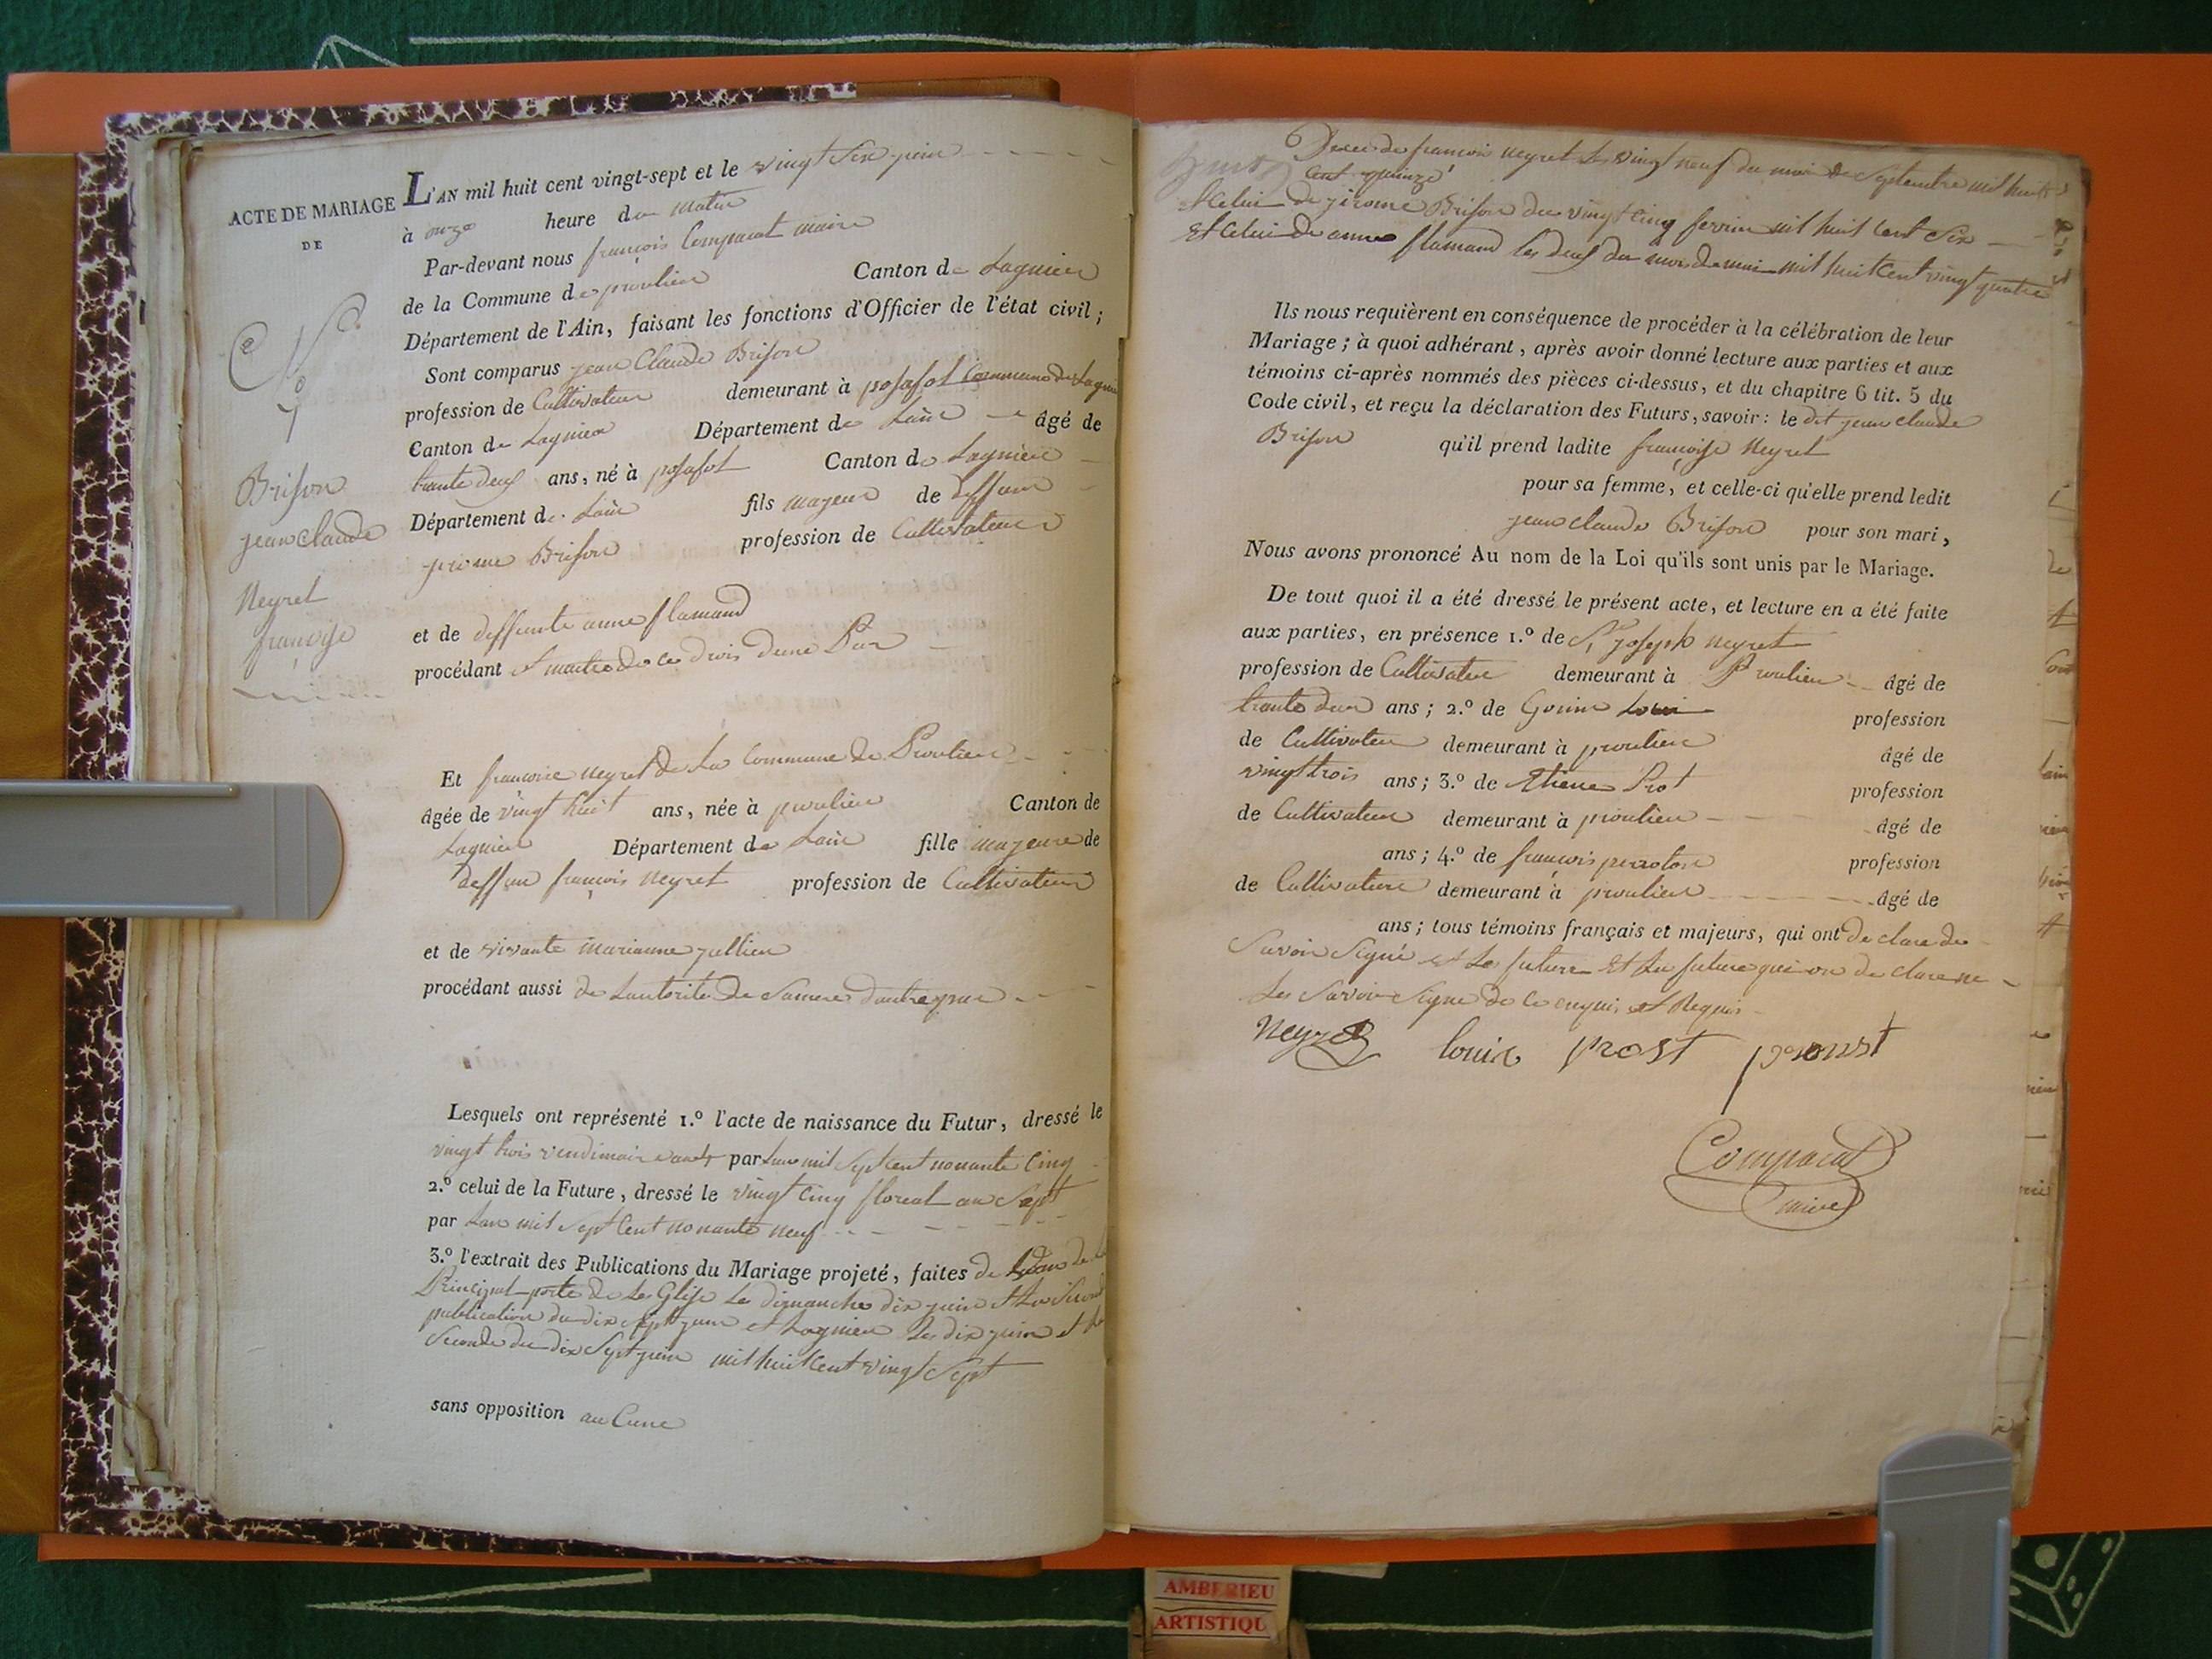 ACTE DE MARIAGE
DE
N.° 7
Brison
jean claude
Neyret
françoise
L'AN mil huit cent vingt-sept et le vingt six juin
à onze heure du matin
Par-devant nous françois Compacat maire
de la Commune de proulieu Canton de Lagnieu
Département de l'Ain, faisant les fonctions d'Officier de l'état civil;
Sont comparus jean Claude Brison
profession de Cultivateur demeurant à posafol Commune de Lagnieu
Canton de Lagnieu Département de Lain âgé de
trante deux ans, né à posafol Canton de Lagnieu
Département de Lain fils majeur de deffunt
jerome Brison profession de Cultivateur
et de deffunte anne flamand
procédant et maitre de ces drois dune Par
Et francoise neyret de La Commune de Proulieu
âgée de vingt huit ans, née à proulieu Canton de
Lagnieu Département de Lain fille majeure de
deffun françois Neyret profession de Cultivateur
et de vivante marianne jullien
procédant aussi de Lautorite de Samere dautre par
Lesquels ont représenté 1.° l'acte de naissance du Futur, dressé le
vingt trois vendimair par Lan mil Sept cent nonante Cinq
2.° celui de la Future, dressé le vingt cinq floreal an Sept
par Lan mil Sept Cent nonante neuf
3.° l'extrait des Publications du Mariage projeté, faites de
Principal porte de Le Glise Le dimanche dix juin et La Second
publication du dix Sept juin et Lagnieu Les dix juin et la
Seconde du dix Sept juin mil huit Cent vingt Sept
sans opposition au Cune
Deces de francois neyret Le vingt neuf du mois de Septembre mil huit
Cent quinze
et Celui de jirome Brison du vingt cinq ferrier mil huit Cent Six
Et Celui de anne flamand les deux du mois de mai mil huit Cent vingt quatre
Ils nous requièrent en conséquence de procéder à la célébration de leur
Mariage; à quoi adhérant, après avoir donné lecture aux parties et aux
témoins ci-après nommés des pièces ci-dessus, et du chapitre 6 tit. 5 du
Code civil, et reçu la déclaration des Futurs, savoir: le dit jean claude
Brison qu'il prend ladite françoise Neyret
pour sa femme, et celle-ci qu'elle prend ledit
jean claude Brison pour son mari,
Nous avons prononcé Au nom de la Loi qu'ils sont unis par le Mariage.
De tout quoi il a été dressé le présent acte, et lecture en a été faite
aux parties, en présence 1.° de Sr joseph neyret
profession de Cultivateur demeurant à Proulieu âgé de
trante deux ans; 2.° de Gonin Loui profession
de Cultivateur demeurant à proulieu âgé de
vingt trois ans; 3.° de Etiene Prot profession
de Cultivateur demeurant à proulieu âgé de
ans; 4.° de françois perroton profession
de Cultivateur demeurant à proulieu âgé de
ans; tous témoins français et majeurs, qui ont de clare de
Savoir Signé et Le future Et La future qui on de clare ne
Les Savoir Signe de Ce enquis et Requis
Neyret louis prost
Compacat
maire
AMBERIEU
ARTISTIQU